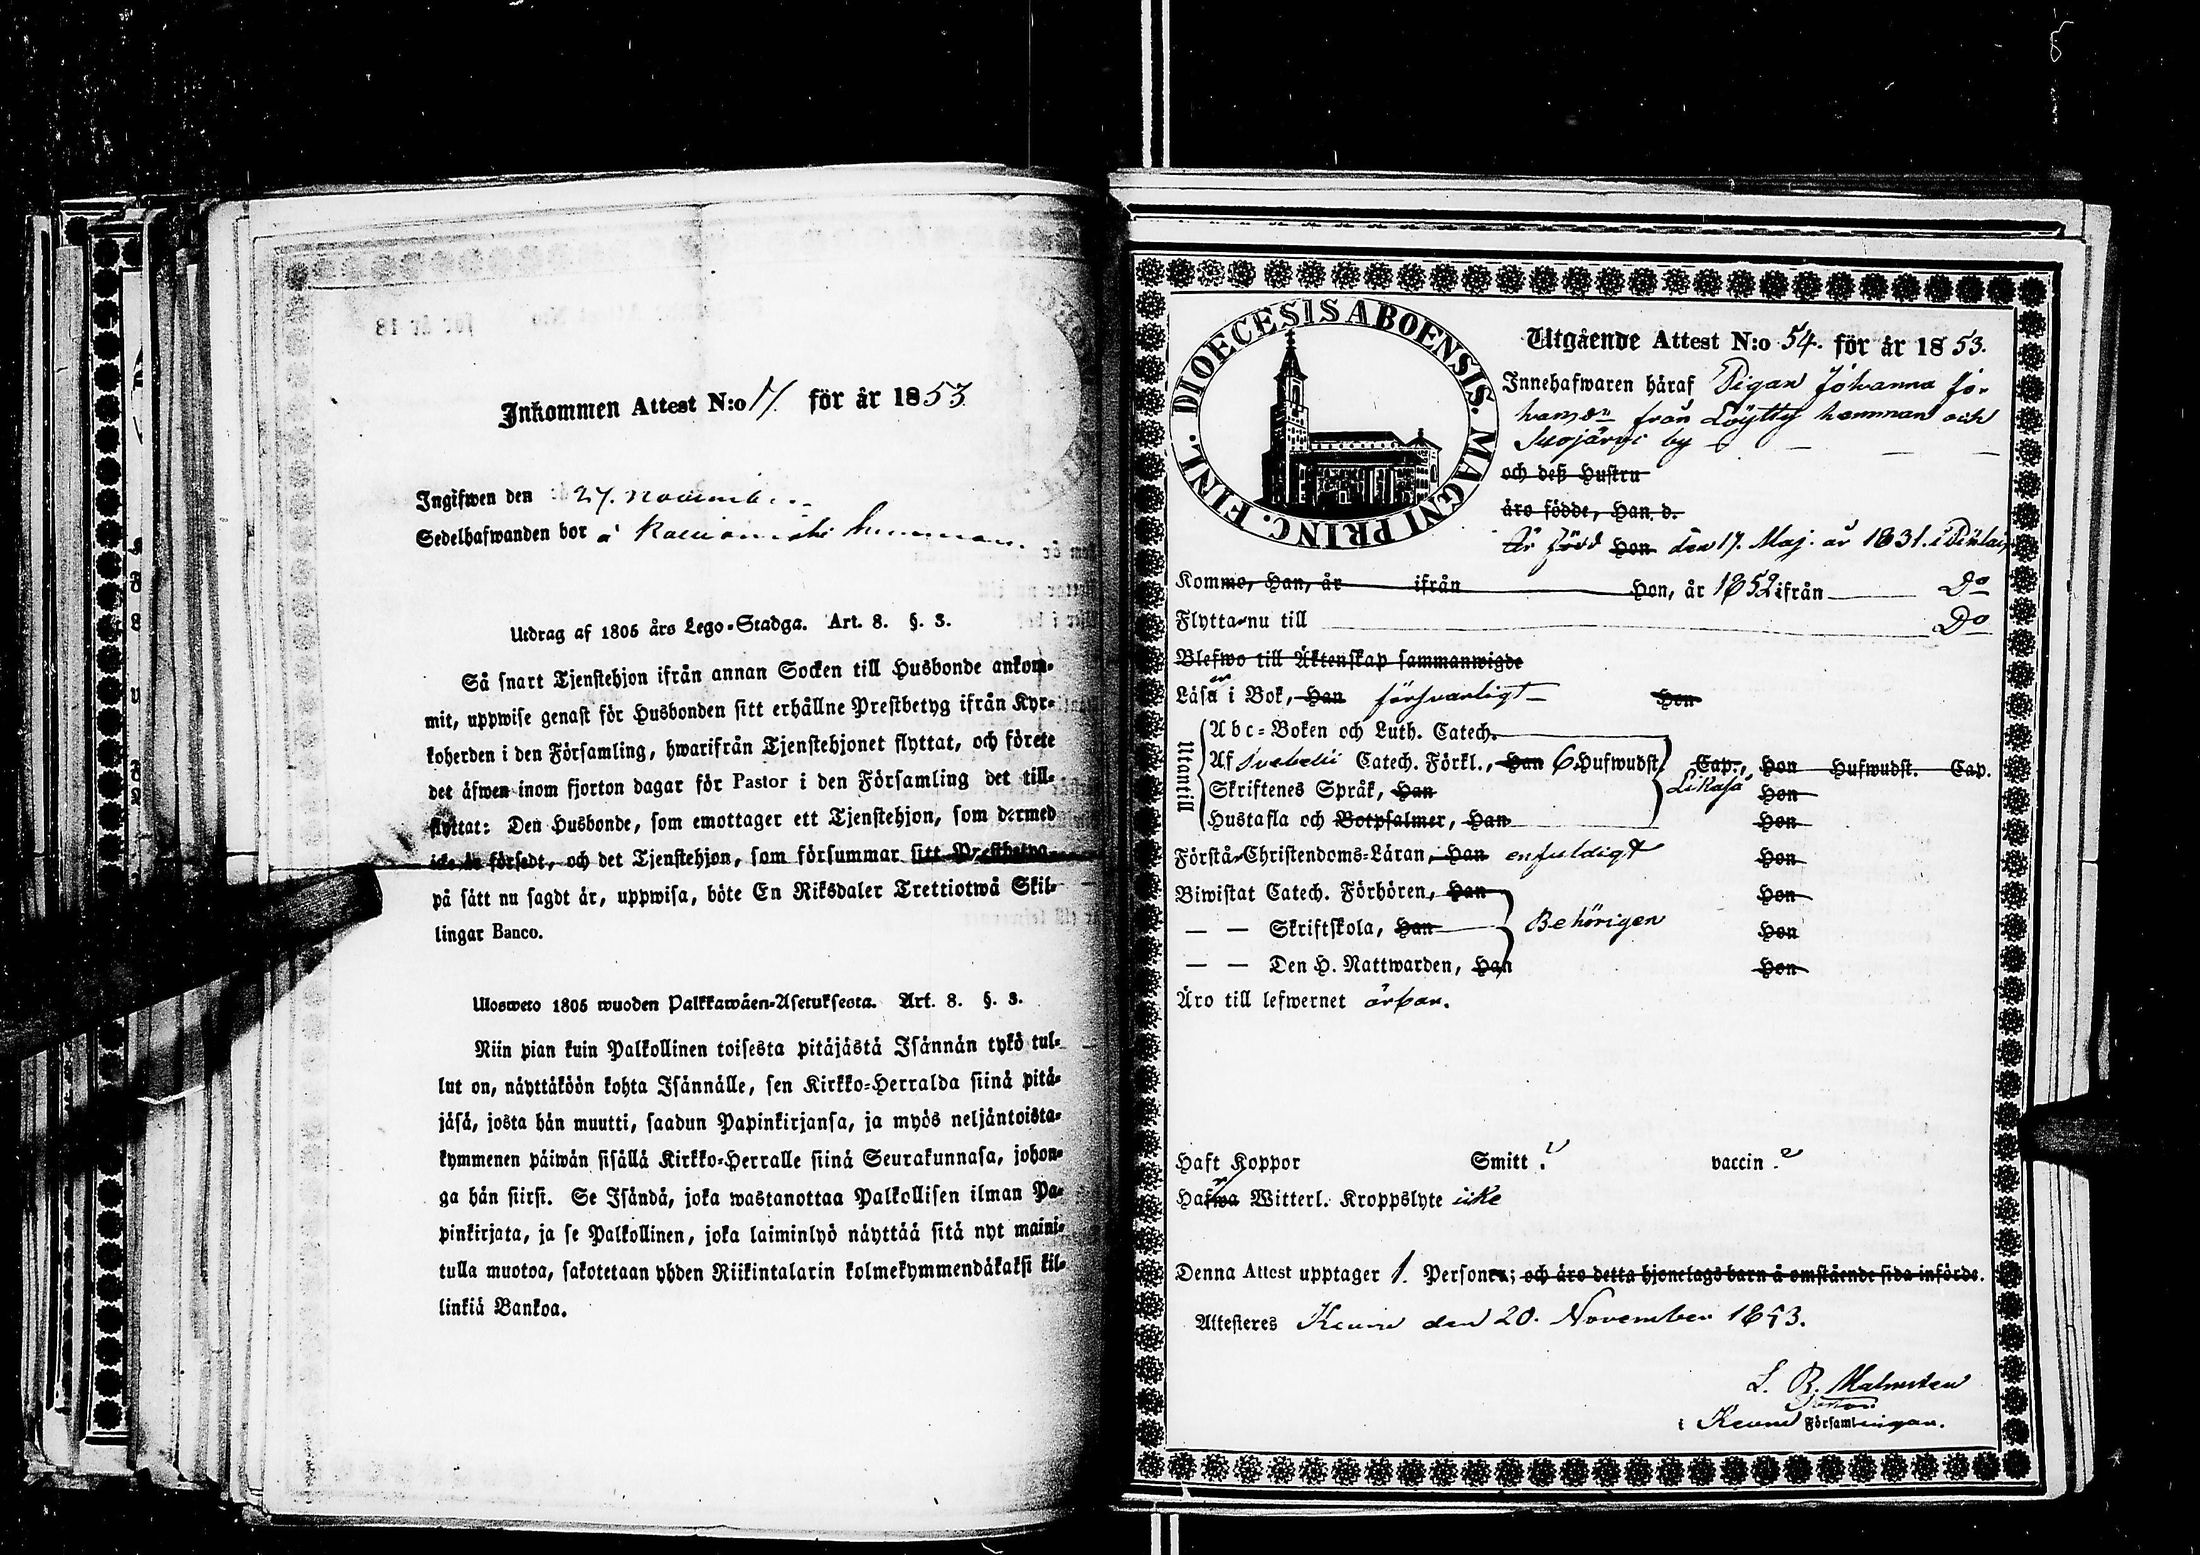 Inkommen Attest N:o 17. för år 1853
Ingifwen den 27. November
Sedelhafwanden bor å hemman.
Utdrag af 1805 års Lego-Stadga. Art. 8. §. 3.
Så snart Tjenstehjon ifrån annan Socken till Husbonde ankom-
mit, uppwise genast för Husbonden sitt erhållne Prestbetyg ifrån Kyr-
koherden i den Församling, hwarifrån Tjenstehjonet flyttat, och förete
det äfwen inom fjorton dagar för Pastor i den Församling det till-
flyttat: Den Husbonde, som emottager ett Tjenstehjon, som dermed
icke är försedt, och det Tjenstehjon, som försummar sitt Prestbetyg
på sätt nu sagdt är, uppwisa, böte En Riksdaler Trettiotwå Skil-
lingar Banco.
Ulosweto 1805 wuoden Palkkawäen-Asetuksesta. Art. 8. §. 3.
Niin pian kuin Palkollinen toisesta pitäjästä Isännän tykö tul-
lut on, näyttäköön kohta Isännälle, sen Kirkko-Herralda siinä pitä-
jäsä, josta hän muutti, saadun Papinkirjansa, ja myös neljäntoista-
kymmenen päiwän sisällä Kirkko-Herralle siinä Seurakunnasa, johon-
ga hän siirsi. Se Isändä, joka wastanottaa Palkollisen ilman Pa-
pinkirjata, ja se Palkollinen, joka laiminlyö näyttää sitä nyt maini-
tulla muotoa, sakotetaan yhden Riikintalarin kolmekymmendäkaksi kil-
linkiä Bankoa.
DIOECESIS ABOENSIS. MAGNI PRINC. FINL.
Utgående Attest N:o 54. för år 1853.
Innehafwaren häraf Pigan Johanna Jo-
hansdr från Löytty hemman och
Suojärvi by
och deß Hustru
äro födde, Han, d.
Är född Hon den 17. Maj. år 1831. i
Komme, Han, år ifrån Hon, år 1852 ifrån Do
Flytta nu till Do
Blefwo till Äktenskap sammanwigde
Läsa i Bok, Han försvarligt Hon
Utantill
Abc-Boken och Luth. Catech.
Af Svebelii Catech. Förkl., Han 6. Hufwudst. Cap., Hon Hufwudst. Cap.
Skriftenes Språk, Han Likaså Hon
Hustafla och Botpsalmer, Han Hon
Förstå Christendoms-Läran, Han enfuldigt Hon
Biwistat Catech. Förhören, Han Hon
— — Skriftskola, Han Behörigen Hon
— — Den H. Nattwarden, Han Hon
Äro till lefwernet ärbar.
Haft Koppor Smitt. vaccin.
Hafwa Witterl. Kroppslyte icke
Denna Attest upptager 1. Personer; och äro detta hjonelags barn å omstående sida införde.
Attesteres Keuru den 20. November 1853.
L. B. Malmsten
i Keuru Församlingar.